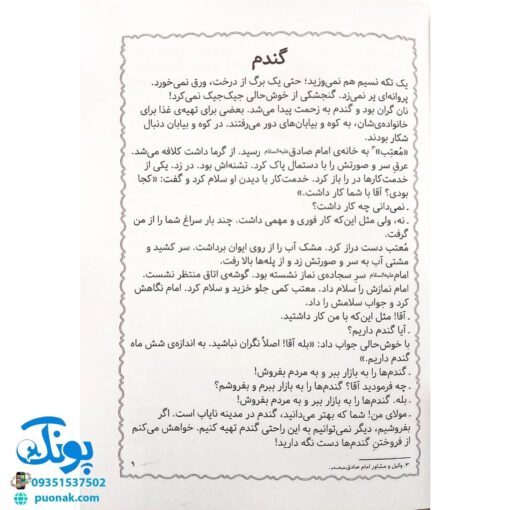 گندم
یک تکه نسیم هم نمی‌وزید؛ حتی یک برگ از درخت، ورق نمی‌خورد.
پروانه‌ای پر نمی‌زد. گنجشکی از خوش‌حالی جیک‌جیک نمی‌کرد!
نان گران بود و گندم به زحمت پیدا می‌شد. بعضی برای تهیه‌ی غذا برای
خانواده‌ی‌شان، به کوه و بیابان‌های دور می‌رفتند. در کوه و بیابان دنبال
شکار بودند.
«مُعتِب»۳ به خانه‌ی امام صادق علیه‌السلام رسید. از گرما داشت کلافه می‌شد.
عرقِ سر و صورتش را با دستمال پاک کرد. تشنه‌اش بود. در زد. یکی از
خدمت‌کارها در را باز کرد. خدمت‌کار با دیدن او سلام کرد و گفت: «کجا
بودی؟ آقا با شما کار داشت.»
ـ نمی‌دانی چه کار داشت؟
ـ نه، ولی مثل این‌که کار فوری و مهمی داشت. چند بار سراغ شما را از من
گرفت.
مُعتب دست دراز کرد. مشک آب را از روی ایوان برداشت. سر کشید و
مشتی آب به سر و صورتش زد و از پله‌ها بالا رفت.
امام علیه‌السلام سرِ سجاده‌ی نماز نشسته بود. گوشه‌ی اتاق منتظر نشست.
امام نمازش را سلام داد. معتب کمی جلو خزید و سلام کرد. امام نگاهش
کرد و جواب سلامش را داد.
ـ آقا! مثل این‌که با من کار داشتید.
ـ آیا گندم داریم؟
با خوش‌حالی جواب داد: «بله آقا! اصلاً نگران نباشید. به اندازه‌ی شش ماه
گندم داریم.»
ـ گندم‌ها را به بازار ببر و به مردم بفروش!
ـ چه فرمودید آقا؟ گندم‌ها را به بازار ببرم و بفروشم؟
ـ بله. گندم‌ها را به بازار ببر و به مردم بفروش!
ـ مولای من! شما که بهتر می‌دانید، گندم در مدینه نایاب است. اگر
بفروشیم، دیگر نمی‌توانیم به این راحتی گندم تهیه کنیم. خواهش می‌کنم
از فروختنِ گندم‌ها دست نگه دارید!
۳. وکیل و مشاور امام صادق
۹
پونک
09351537502
puonak.com